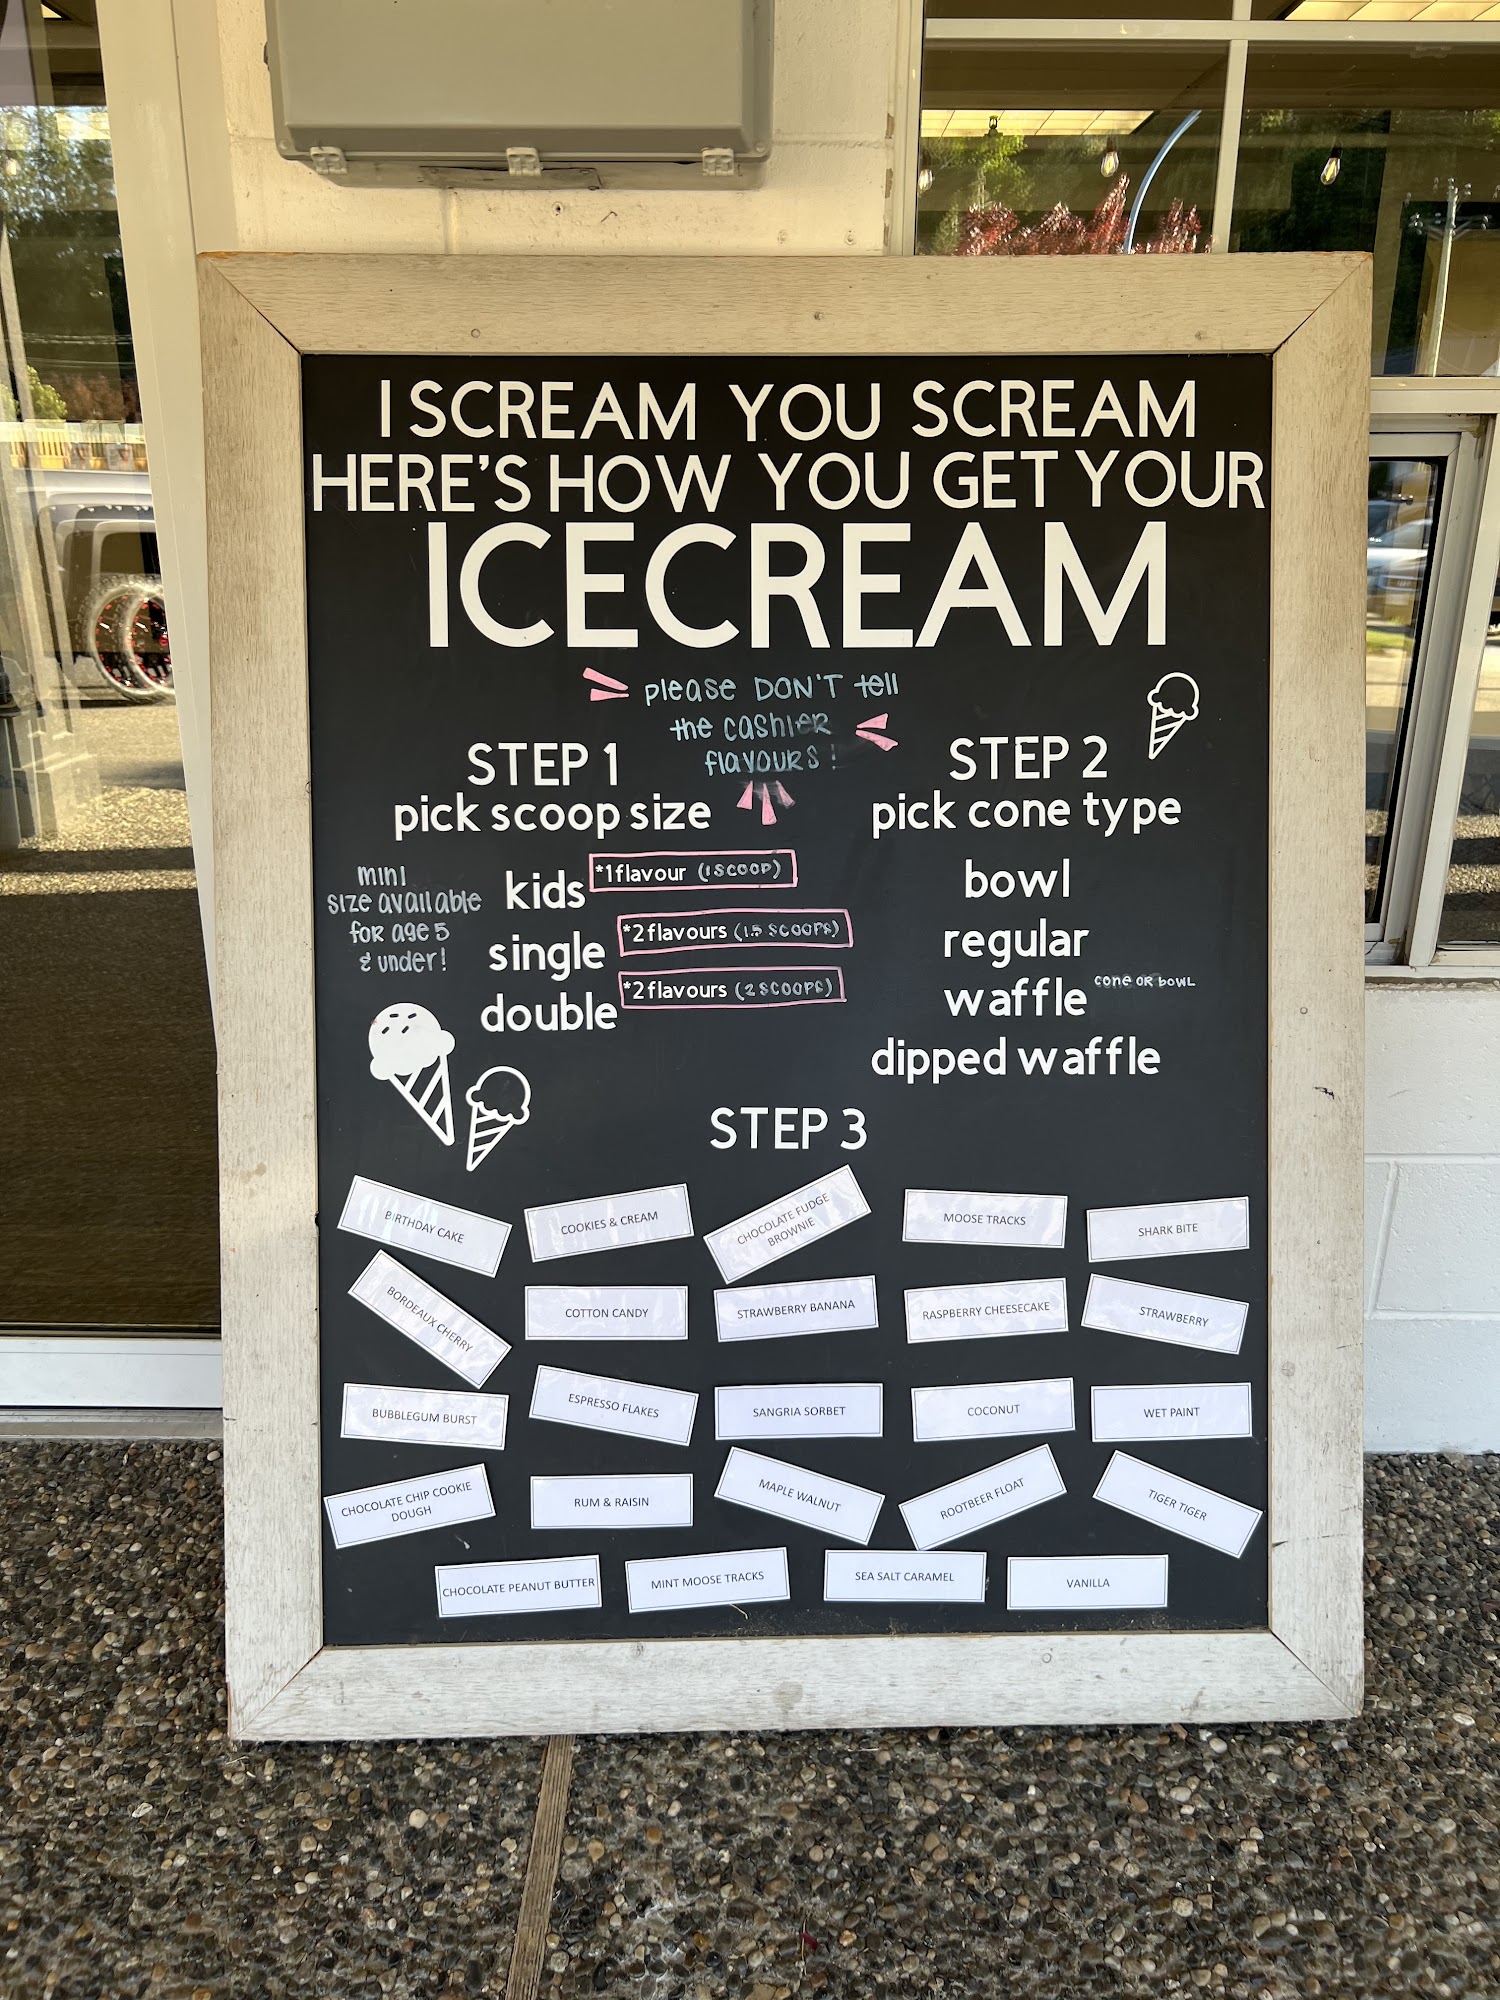 I SCREAM YOU SCREAM
HERE'S HOW YOU GET YOUR
ICECREAM
please DON'T tell
the cashier
flavours!
STEP 1
pick scoop size
mini
size available
for age 5
& under!
kids *1flavour (1 SCOOP)
single *2flavours (1.5 SCOOPS)
double *2flavours (2 SCOOPS)
STEP 2
pick cone type
bowl
regular
waffle cone OR bowl
dipped waffle
STEP 3
BIRTHDAY CAKE
COOKIES & CREAM
CHOCOLATE FUDGE
BROWNIE
MOOSE TRACKS
SHARK BITE
BORDEAUX CHERRY
COTTON CANDY
STRAWBERRY BANANA
RASPBERRY CHEESECAKE
STRAWBERRY
BUBBLEGUM BURST
ESPRESSO FLAKES
SANGRIA SORBET
COCONUT
WET PAINT
CHOCOLATE CHIP COOKIE
DOUGH
RUM & RAISIN
MAPLE WALNUT
ROOTBEER FLOAT
TIGER TIGER
CHOCOLATE PEANUT BUTTER
MINT MOOSE TRACKS
SEA SALT CARAMEL
VANILLA